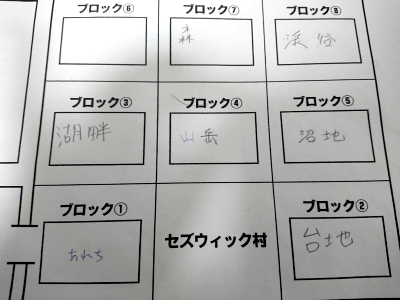 ブロック⑥
ブロック⑦
森
ブロック⑧
渓谷
ブロック③
湖畔
ブロック④
山岳
ブロック⑤
沼地
ブロック①
あれち
セズウィック村
ブロック②
台地